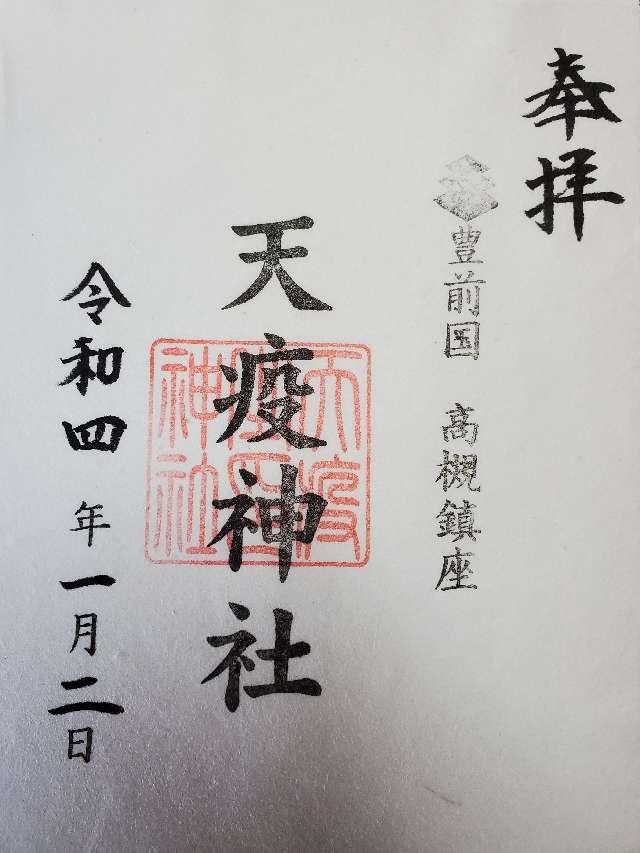 奉拝
豊前国 高槻鎮座
天疫神社
令和四年一月二日